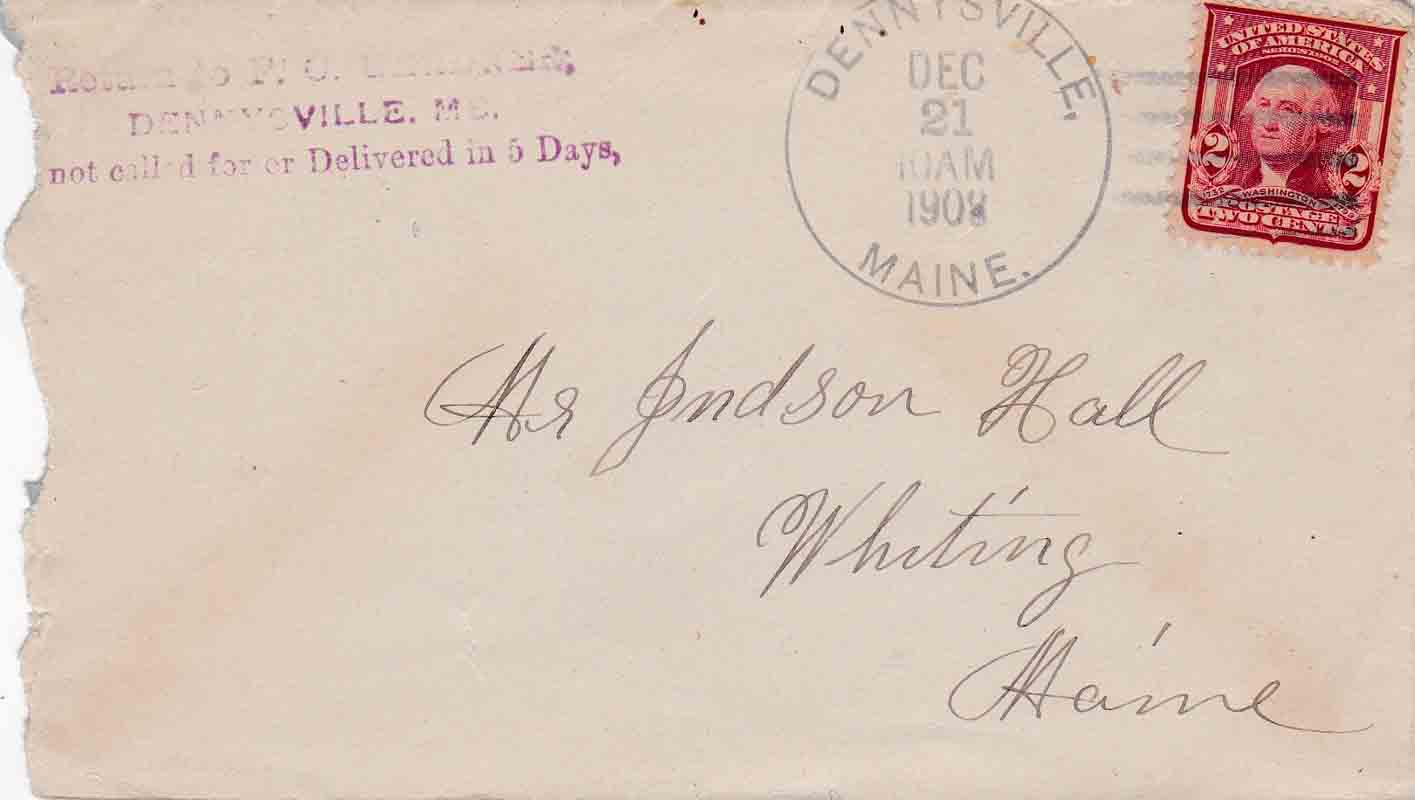 Return to F. O.
DENNYSVILLE, ME.
not called for or Delivered in 5 Days,
DENNYSVILLE,
DEC
21
10AM
1908
MAINE.
UNITED STATES
OF AMERICA
SERIES 1902
2 2
1732 WASHINGTON 1799
POSTAGE
TWO CENTS
Mr Judson Hall
Whiting
Maine